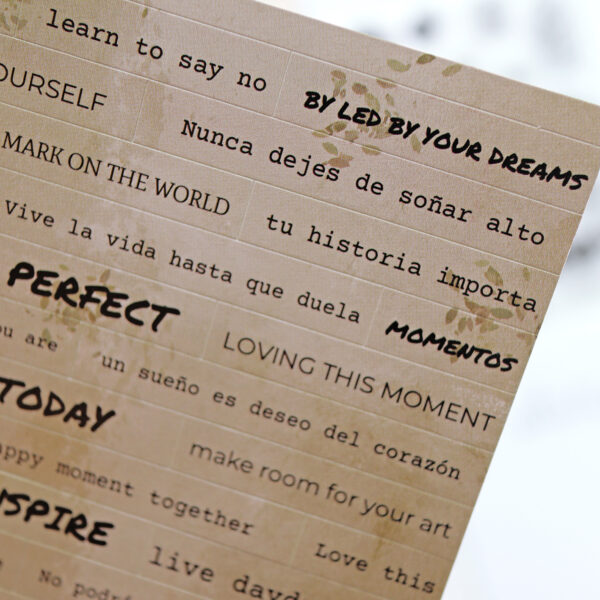 learn to say no
BY LED BY YOUR DREAMS
OURSELF
Nunca dejes de soñar alto
MARK ON THE WORLD
tu historia importa
Vive la vida hasta que duela
MOMENTOS
PERFECT
LOVING THIS MOMENT
ou are
un sueño es deseo del corazón
TODAY
make room for your art
appy moment together
Love this
NSPIRE
live dayd
No podr